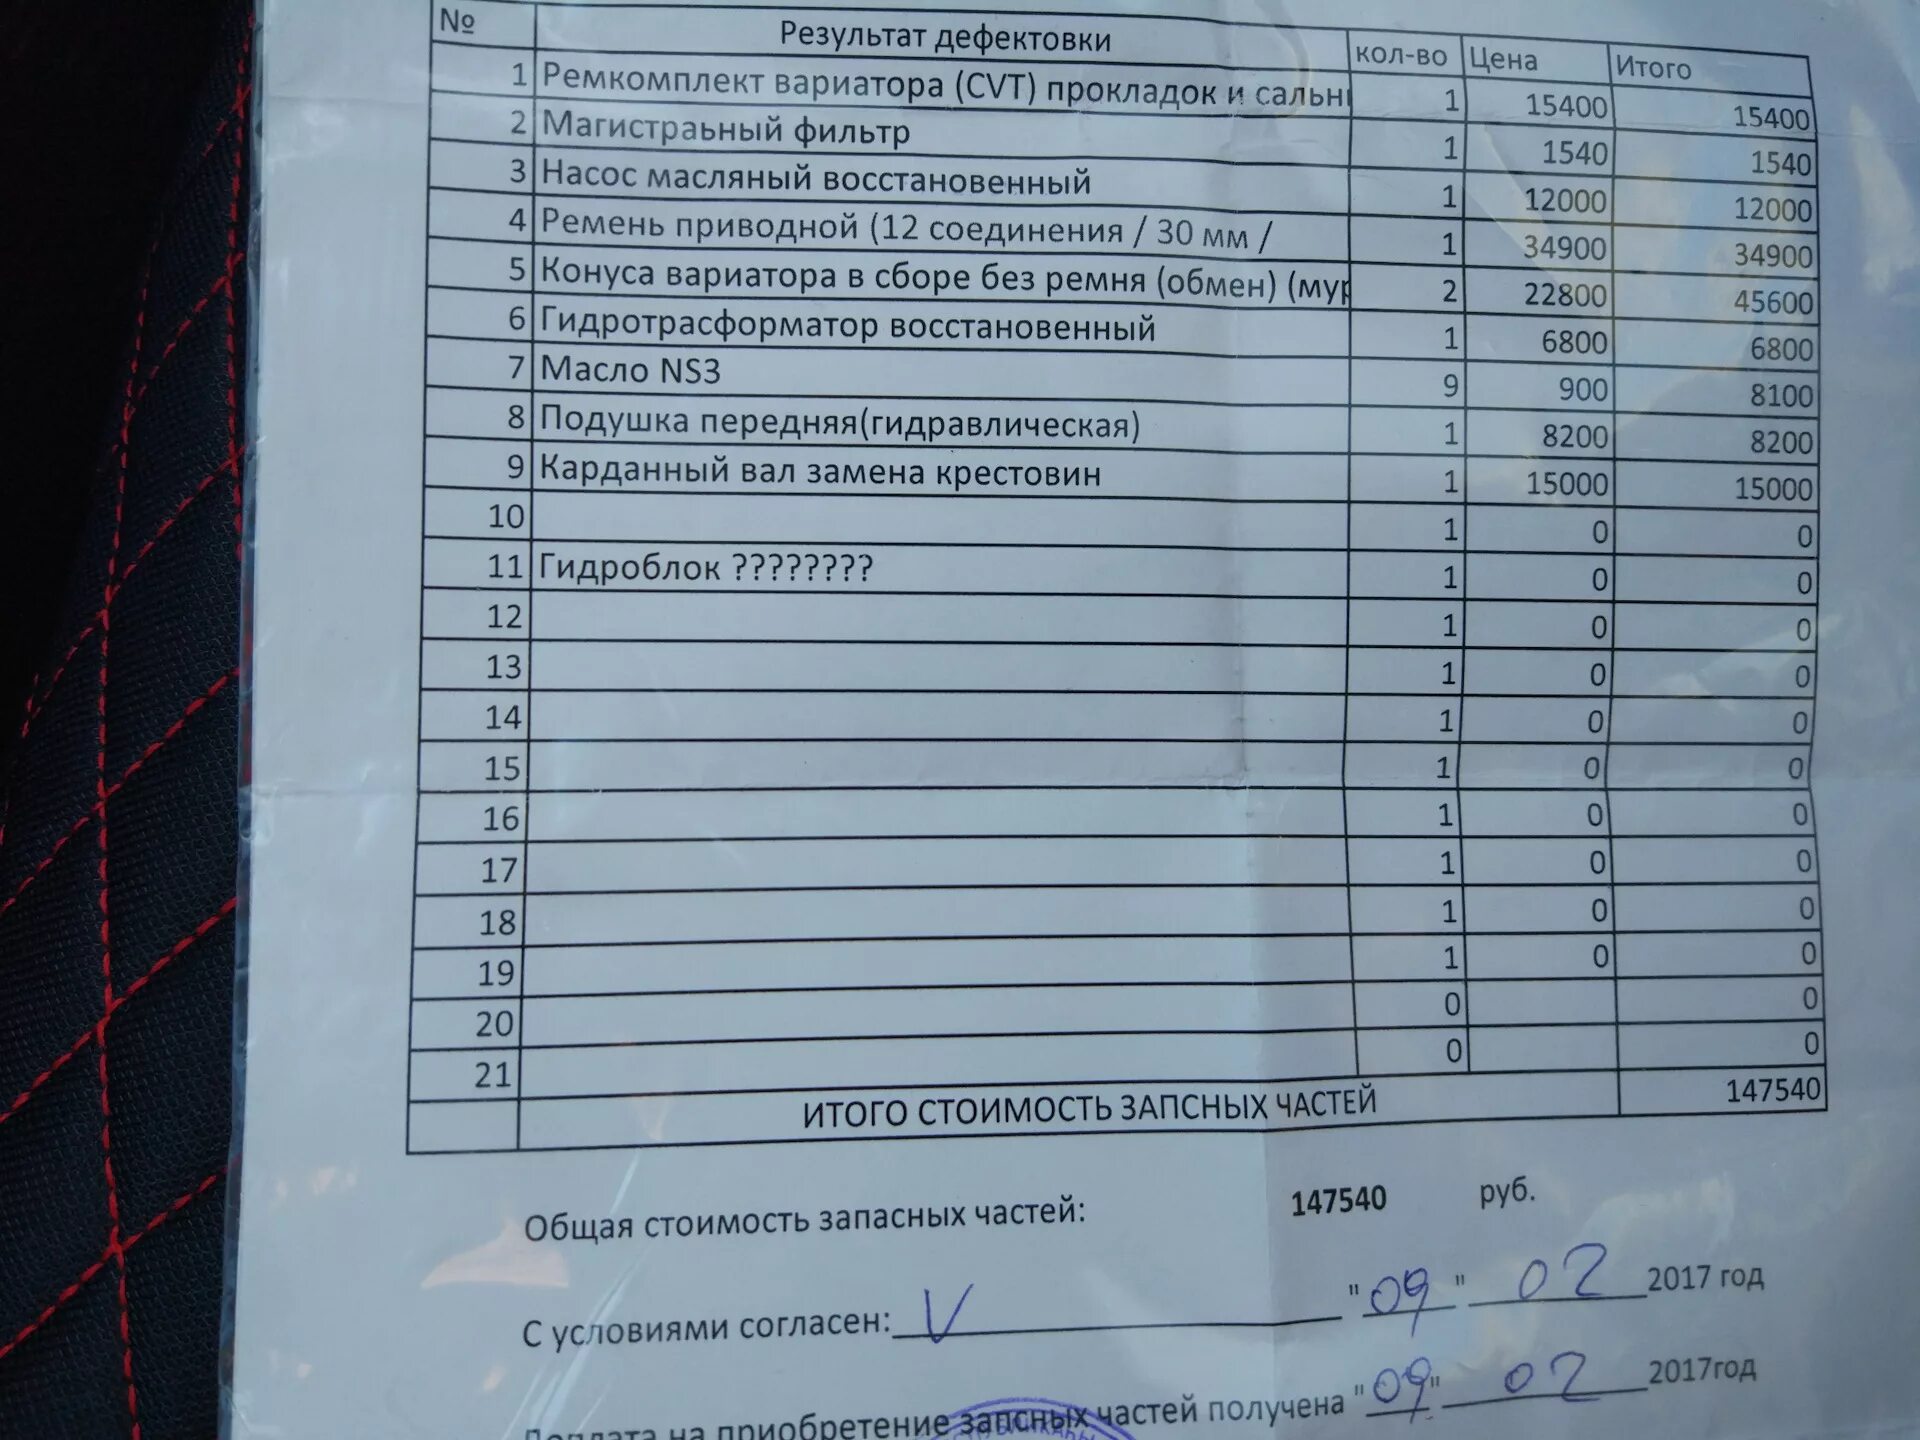 № Результат дефектовки кол-во Цена Итого
1 Ремкомплект вариатора (CVT) прокладок и сальн 1 15400 15400
2 Магистраьный фильтр 1 1540 1540
3 Насос масляный восстановенный 1 12000 12000
4 Ремень приводной (12 соединения / 30 мм / 1 34900 34900
5 Конуса вариатора в сборе без ремня (обмен) (мур 2 22800 45600
6 Гидротрасформатор восстановенный 1 6800 6800
7 Масло NS3 9 900 8100
8 Подушка передняя(гидравлическая) 1 8200 8200
9 Карданный вал замена крестовин 1 15000 15000
10 1 0 0
11 Гидроблок ???????? 1 0 0
12 1 0 0
13 1 0 0
14 1 0 0
15 1 0 0
16 1 0 0
17 1 0 0
18 1 0 0
19 1 0 0
20 0 0
21 0 0
ИТОГО СТОИМОСТЬ ЗАПСНЫХ ЧАСТЕЙ 147540
Общая стоимость запасных частей: 147540 руб.
С условиями согласен: V "09" 02 2017 год
Доплата на приобретение запсных частей получена "09" 02 2017год